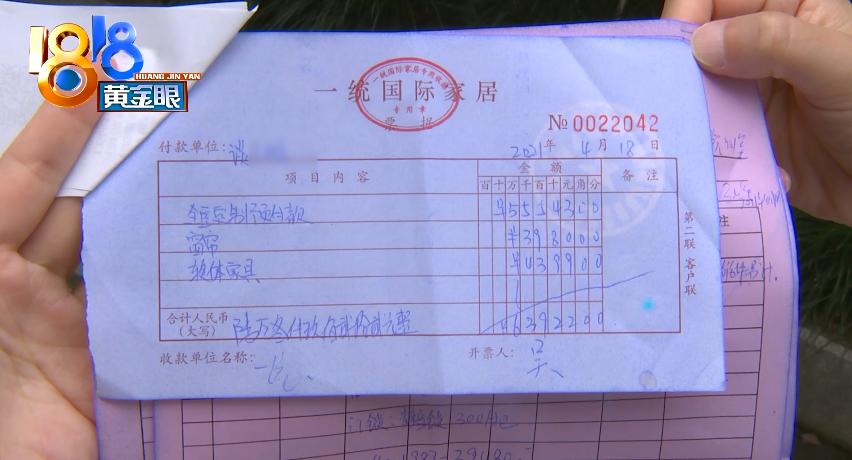 1818
HUANG JIN YAN
黄金眼
一统国际家居专用收据
专用章
一统国际家居
票据
№0022042
付款单位: 谈
2021年 4月 18日
项目内容 金额 备注
百十万千百十元角分
全屋定制预付款 ¥5554300
窗帘 ¥398000
软体家具 ¥439900
合计人民币(大写) 陆万叁仟玖佰贰拾贰元整 ¥6392200
第二联 客户联
收款单位名称:
开票人:
注
门锁: 300/把